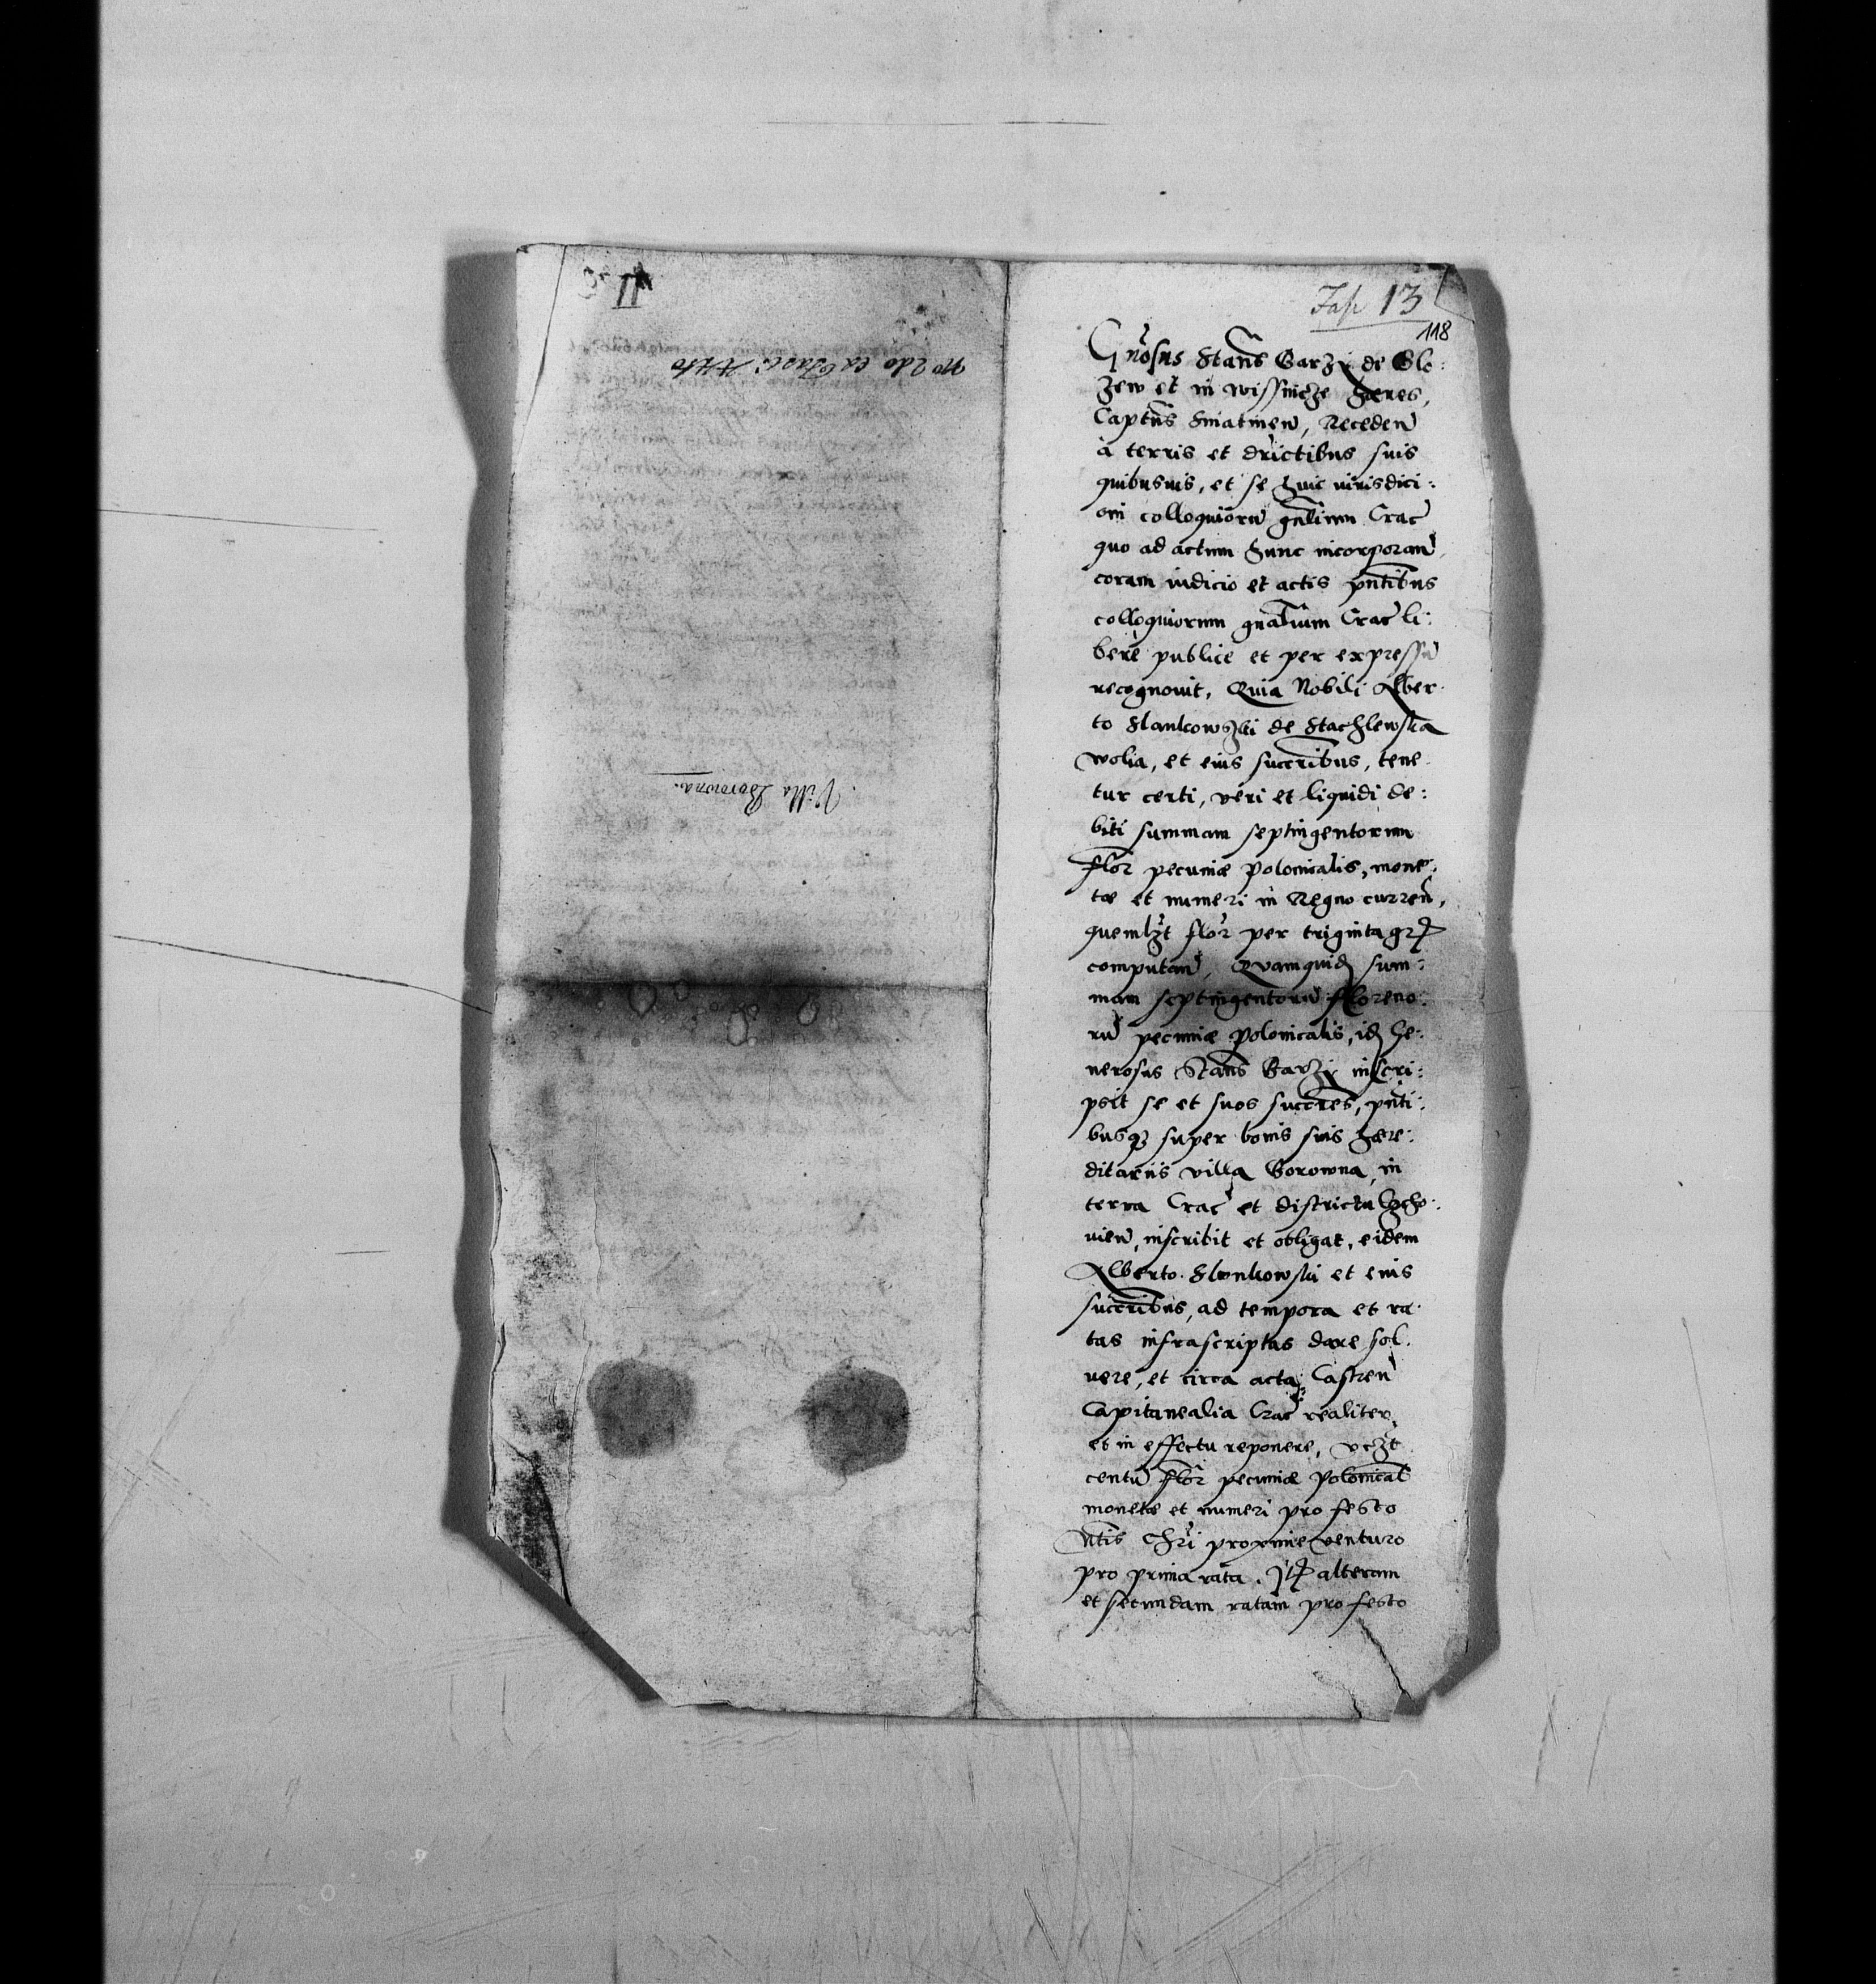 II
Villa Borowna.
Fasc 13
118
Gnosus Stans Barzi de Blo:
zew et in Wissnicze haeres,
Captus Sniatinen, Receden
à terris et drictibus suis
quibusuis, et se huic iurisdici:
oni colloquiorū gnalium Crac
quo ad actum hunc incorporan,
coram iudicio et actis pntibus
colloquiorum gnalium Crac li:
berè publice et per expressū
recognouit, Quia Nobili Alber
to Slankowski de Stachlewska
wolia, et eius succribus, tene
tur certi, veri et liquidi de:
biti summam septingentorum
flor pecuniæ Polonicalis, mone:
tæ et numeri in Regno curren,
quemlzt flor per triginta gr
computan, Quamquid sum:
mam septingentorū floreno:
rū pecuniæ Polonicalis, id Ge:
nerosus Stans Barzi inscri:
psit se et suos succres, pnti:
busq super bonis suis hære:
ditariis villa Borowna, in
terra Crac et districtu
uien, inscribit et obligat, eidem
Alberto Slonkowski et eius
succribus, ad tempora et ra
tas infrascriptas dare sol
uere, et circa acta Castren
Capitanealia Crac realiter
et in effectu reponere, vczt
centū flor pecuniæ Polonical
monetæ et numeri pro festo
Ntis Chri proxime venturo
pro prima rata. It alteram
et secundam ratam pro festo